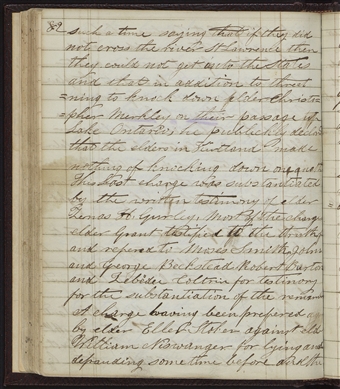 82
such a time saying that if they did
not cross the river St Lawrence then
they could not get into the States
and that in addition to threat
=ning to knock down elder Christo
=pher Merkley on their passage up
Lake Ontario he publickly declared
that the elders in Kirtland make
nothing of knocking down one another
This last charge was substantiated
by the written testimony of elder
Zenas H Gurley, Most of the charg
elder Grant testified to the truth
and refered to Moses Smith John
and George Beckstead Robert Burton
and Zebidee Coltrin for testimony
for the substantiation of the remain
A charge having been prefered
by elder against eld
William Newanger for lying and
some time before and the